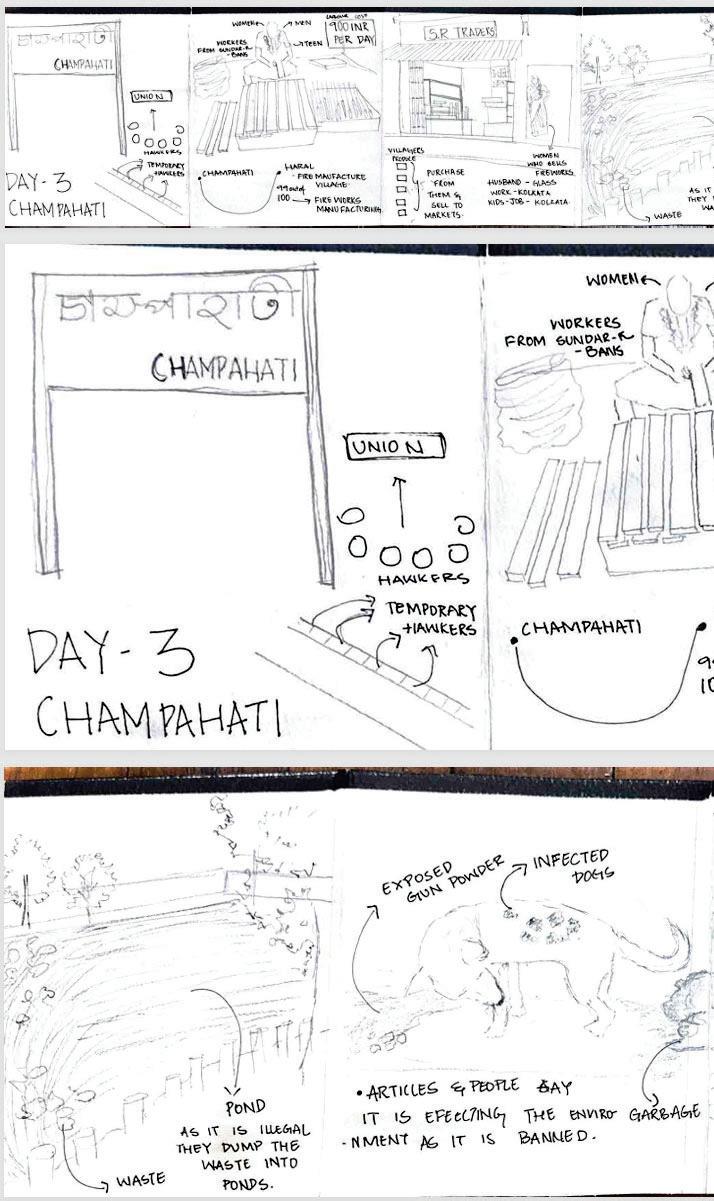 চাম্পাহাটী
CHAMPAHATI
UNION
HAWKERS
TEMPORARY
HAWKERS
DAY-3
CHAMPAHATI
WOMEN
MEN
TEEN
WORKERS
FROM SUNDAR-
-BANS
LABOUR COST
900 INR
PER DAY
CHAMPAHATI
HARAL
- FIRE MAUFACTURE
VILLAGE.
99 out of
100
FIRE WORKS
MANUFACTURING.
S.R TRADERS
VILLAGERS
PRODUCE
PURCHASE
FROM
THEM &
SELL TO
MARKETS.
WOMEN
WHO SELLS
FIREWORKS.
HUSBAND - GLASS
WORK - KOLKATA
KIDS - JOB - KOLKATA.
WASTE
AS IT
THEY
WA
চাম্পাহাটী
CHAMPAHATI
UNION
HAWKERS
TEMPORARY
HAWKERS
DAY-3
CHAMPAHATI
WOMEN
WORKERS
FROM SUNDAR-
-BANS
CHAMPAHATI
9
10
POND
AS IT IS ILLEGAL
THEY DUMP THE
WASTE INTO
PONDS.
WASTE
EXPOSED
GUN POWDER
INFECTED
DOGS
GARBAGE
• ARTICLES & PEOPLE SAY
IT IS EFECCTING THE ENVIRO
-NMENT AS IT IS BANNED.